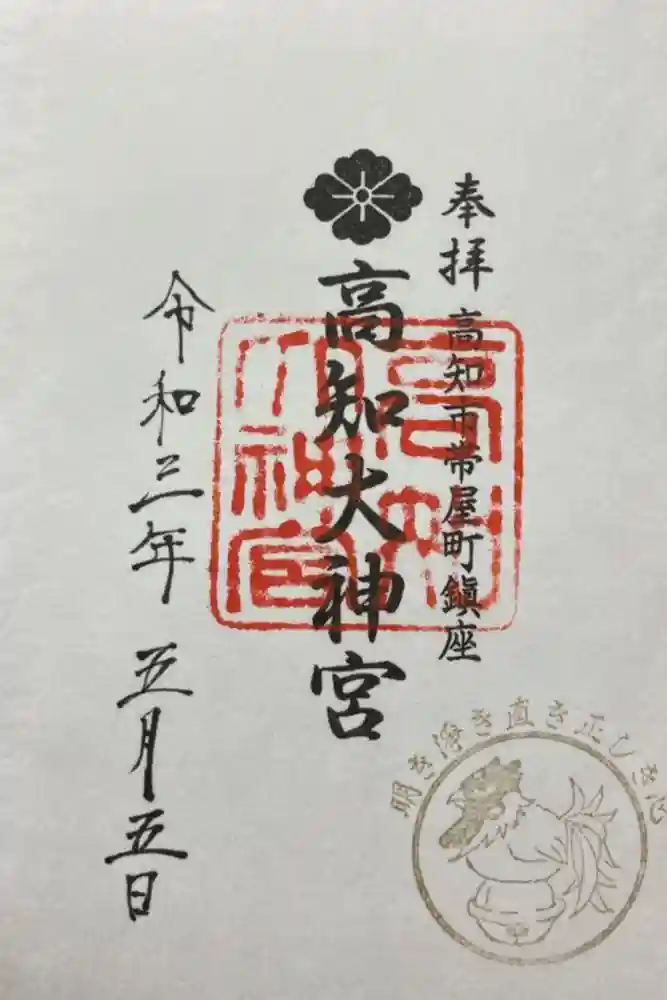 奉拝 高知市帯屋町鎮座
高知大神宮
令和三年 五月五日
明き浄き直き正しき心